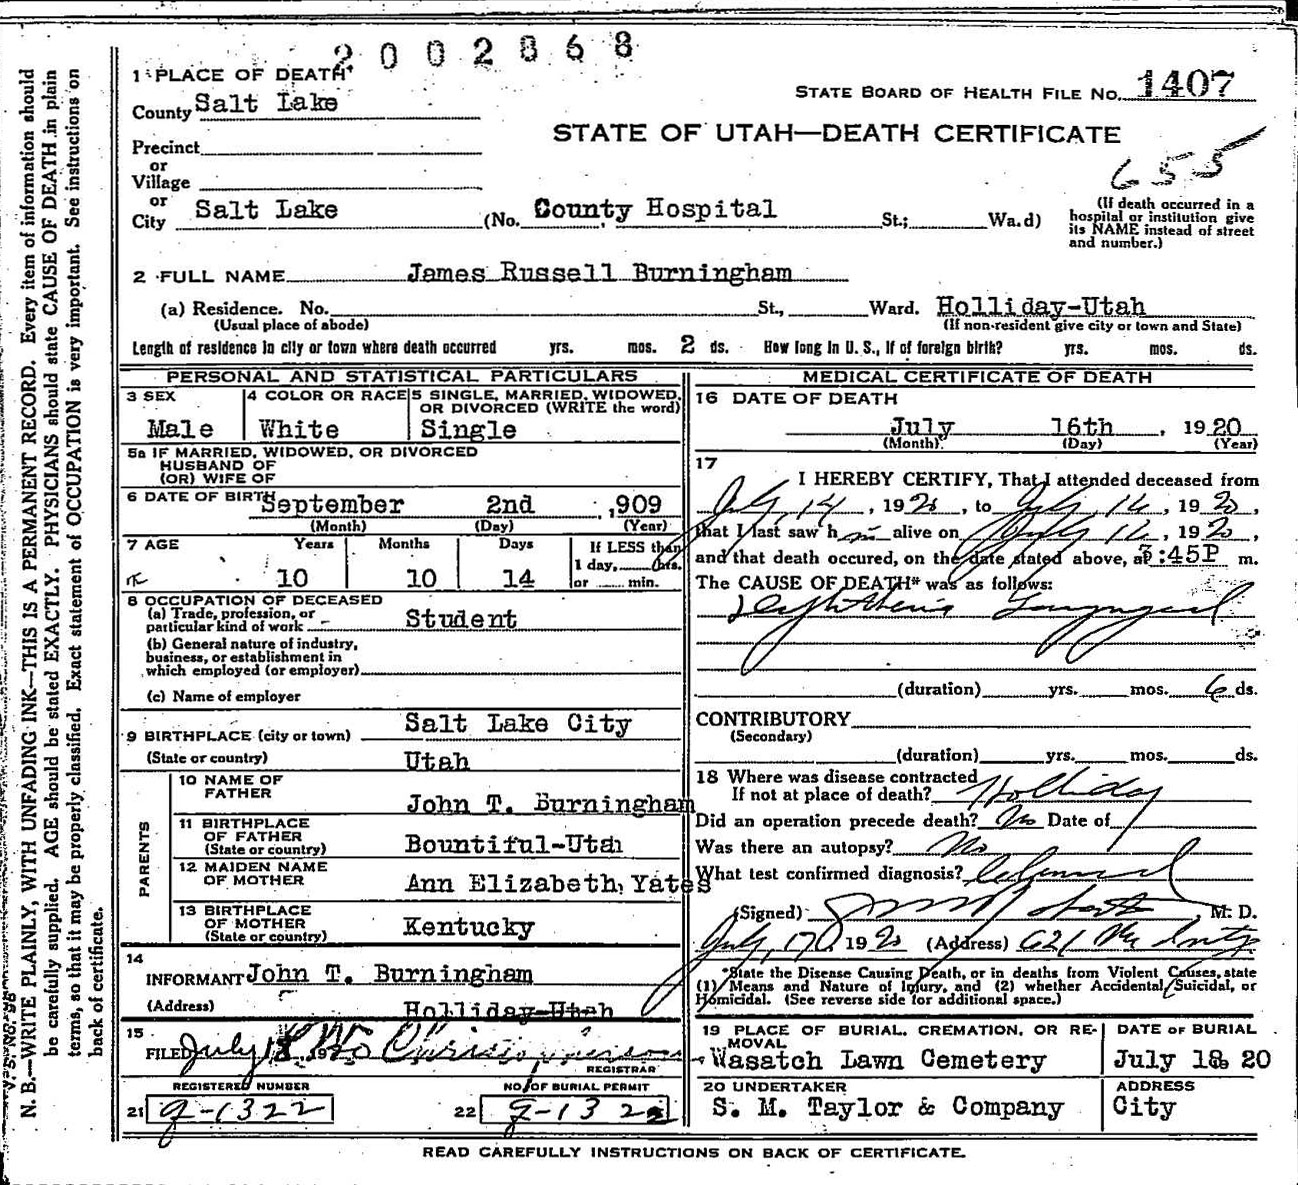 2002868
1 PLACE OF DEATH
STATE BOARD OF HEALTH FILE NO. 1407
County Salt Lake
STATE OF UTAH—DEATH CERTIFICATE
Precinct
or
Village
655
or
City Salt Lake (No. County Hospital St.; Wa.d)
(If death occurred in a
hospital or institution give
its NAME instead of street
and number.)
2 FULL NAME James Russell Burningham
(a) Residence. No. St., Ward. Holliday-Utah
(Usual place of abode) (If non-resident give city or town and State)
Length of residence in city or town where death occurred yrs. mos. 2 ds. How long in U. S., if of foreign birth? yrs. mos. ds.
PERSONAL AND STATISTICAL PARTICULARS
3 SEX 4 COLOR OR RACE 5 SINGLE, MARRIED, WIDOWED,
OR DIVORCED (WRITE the word)
Male White Single
5a IF MARRIED, WIDOWED, OR DIVORCED
HUSBAND OF
(OR) WIFE OF
6 DATE OF BIRTH September 2nd ,909
(Month) (Day) (Year)
7 AGE Years Months Days If LESS than
1 day, hrs.
10 10 14 or min.
8 OCCUPATION OF DECEASED
(a) Trade, profession, or
particular kind of work Student
(b) General nature of industry,
business, or establishment in
which employed (or employer)
(c) Name of employer
9 BIRTHPLACE (city or town) Salt Lake City
(State or country) Utah
PARENTS
10 NAME OF
FATHER John T. Burningham
11 BIRTHPLACE
OF FATHER
(State or country) Bountiful-Utah
12 MAIDEN NAME
OF MOTHER Ann Elizabeth Yates
13 BIRTHPLACE
OF MOTHER
(State or country) Kentucky
14
INFORMANT John T. Burningham
(Address) Holliday-Utah
15
FILED July 18
REGISTRAR
REGISTERED NUMBER NO. OF BURIAL PERMIT
21 g-1322 22 g-1322
MEDICAL CERTIFICATE OF DEATH
16 DATE OF DEATH
July 16th, 1920
(Month) (Day) (Year)
17
I HEREBY CERTIFY, That I attended deceased from
July 14, 1920, to July 16, 1920,
that I last saw him alive on July 16, 1920,
and that death occured, on the date stated above, at 3:45P m.
The CAUSE OF DEATH* was as follows:
Diphtheria Laryngeal
(duration) yrs. mos. 6 ds.
CONTRIBUTORY
(Secondary)
(duration) yrs. mos. ds.
18 Where was disease contracted
If not at place of death? Holliday
Did an operation precede death? No Date of
Was there an autopsy? No
What test confirmed diagnosis? Clinical
(Signed) , M. D.
July 17, 1920 (Address) 621
*State the Disease Causing Death, or in deaths from Violent Causes, state
(1) Means and Nature of Injury, and (2) whether Accidental, Suicidal, or
Homicidal. (See reverse side for additional space.)
19 PLACE OF BURIAL, CREMATION, OR RE-
MOVAL DATE OF BURIAL
Wasatch Lawn Cemetery July 18 20
20 UNDERTAKER ADDRESS
S. M. Taylor & Company City
READ CAREFULLY INSTRUCTIONS ON BACK OF CERTIFICATE.
N. B.—WRITE PLAINLY, WITH UNFADING INK—THIS IS A PERMANENT RECORD. Every item of information should
be carefully supplied. AGE should be stated EXACTLY. PHYSICIANS should state CAUSE OF DEATH in plain
terms, so that it may be properly classified. Exact statement of OCCUPATION is very important. See instructions on
back of certificate.